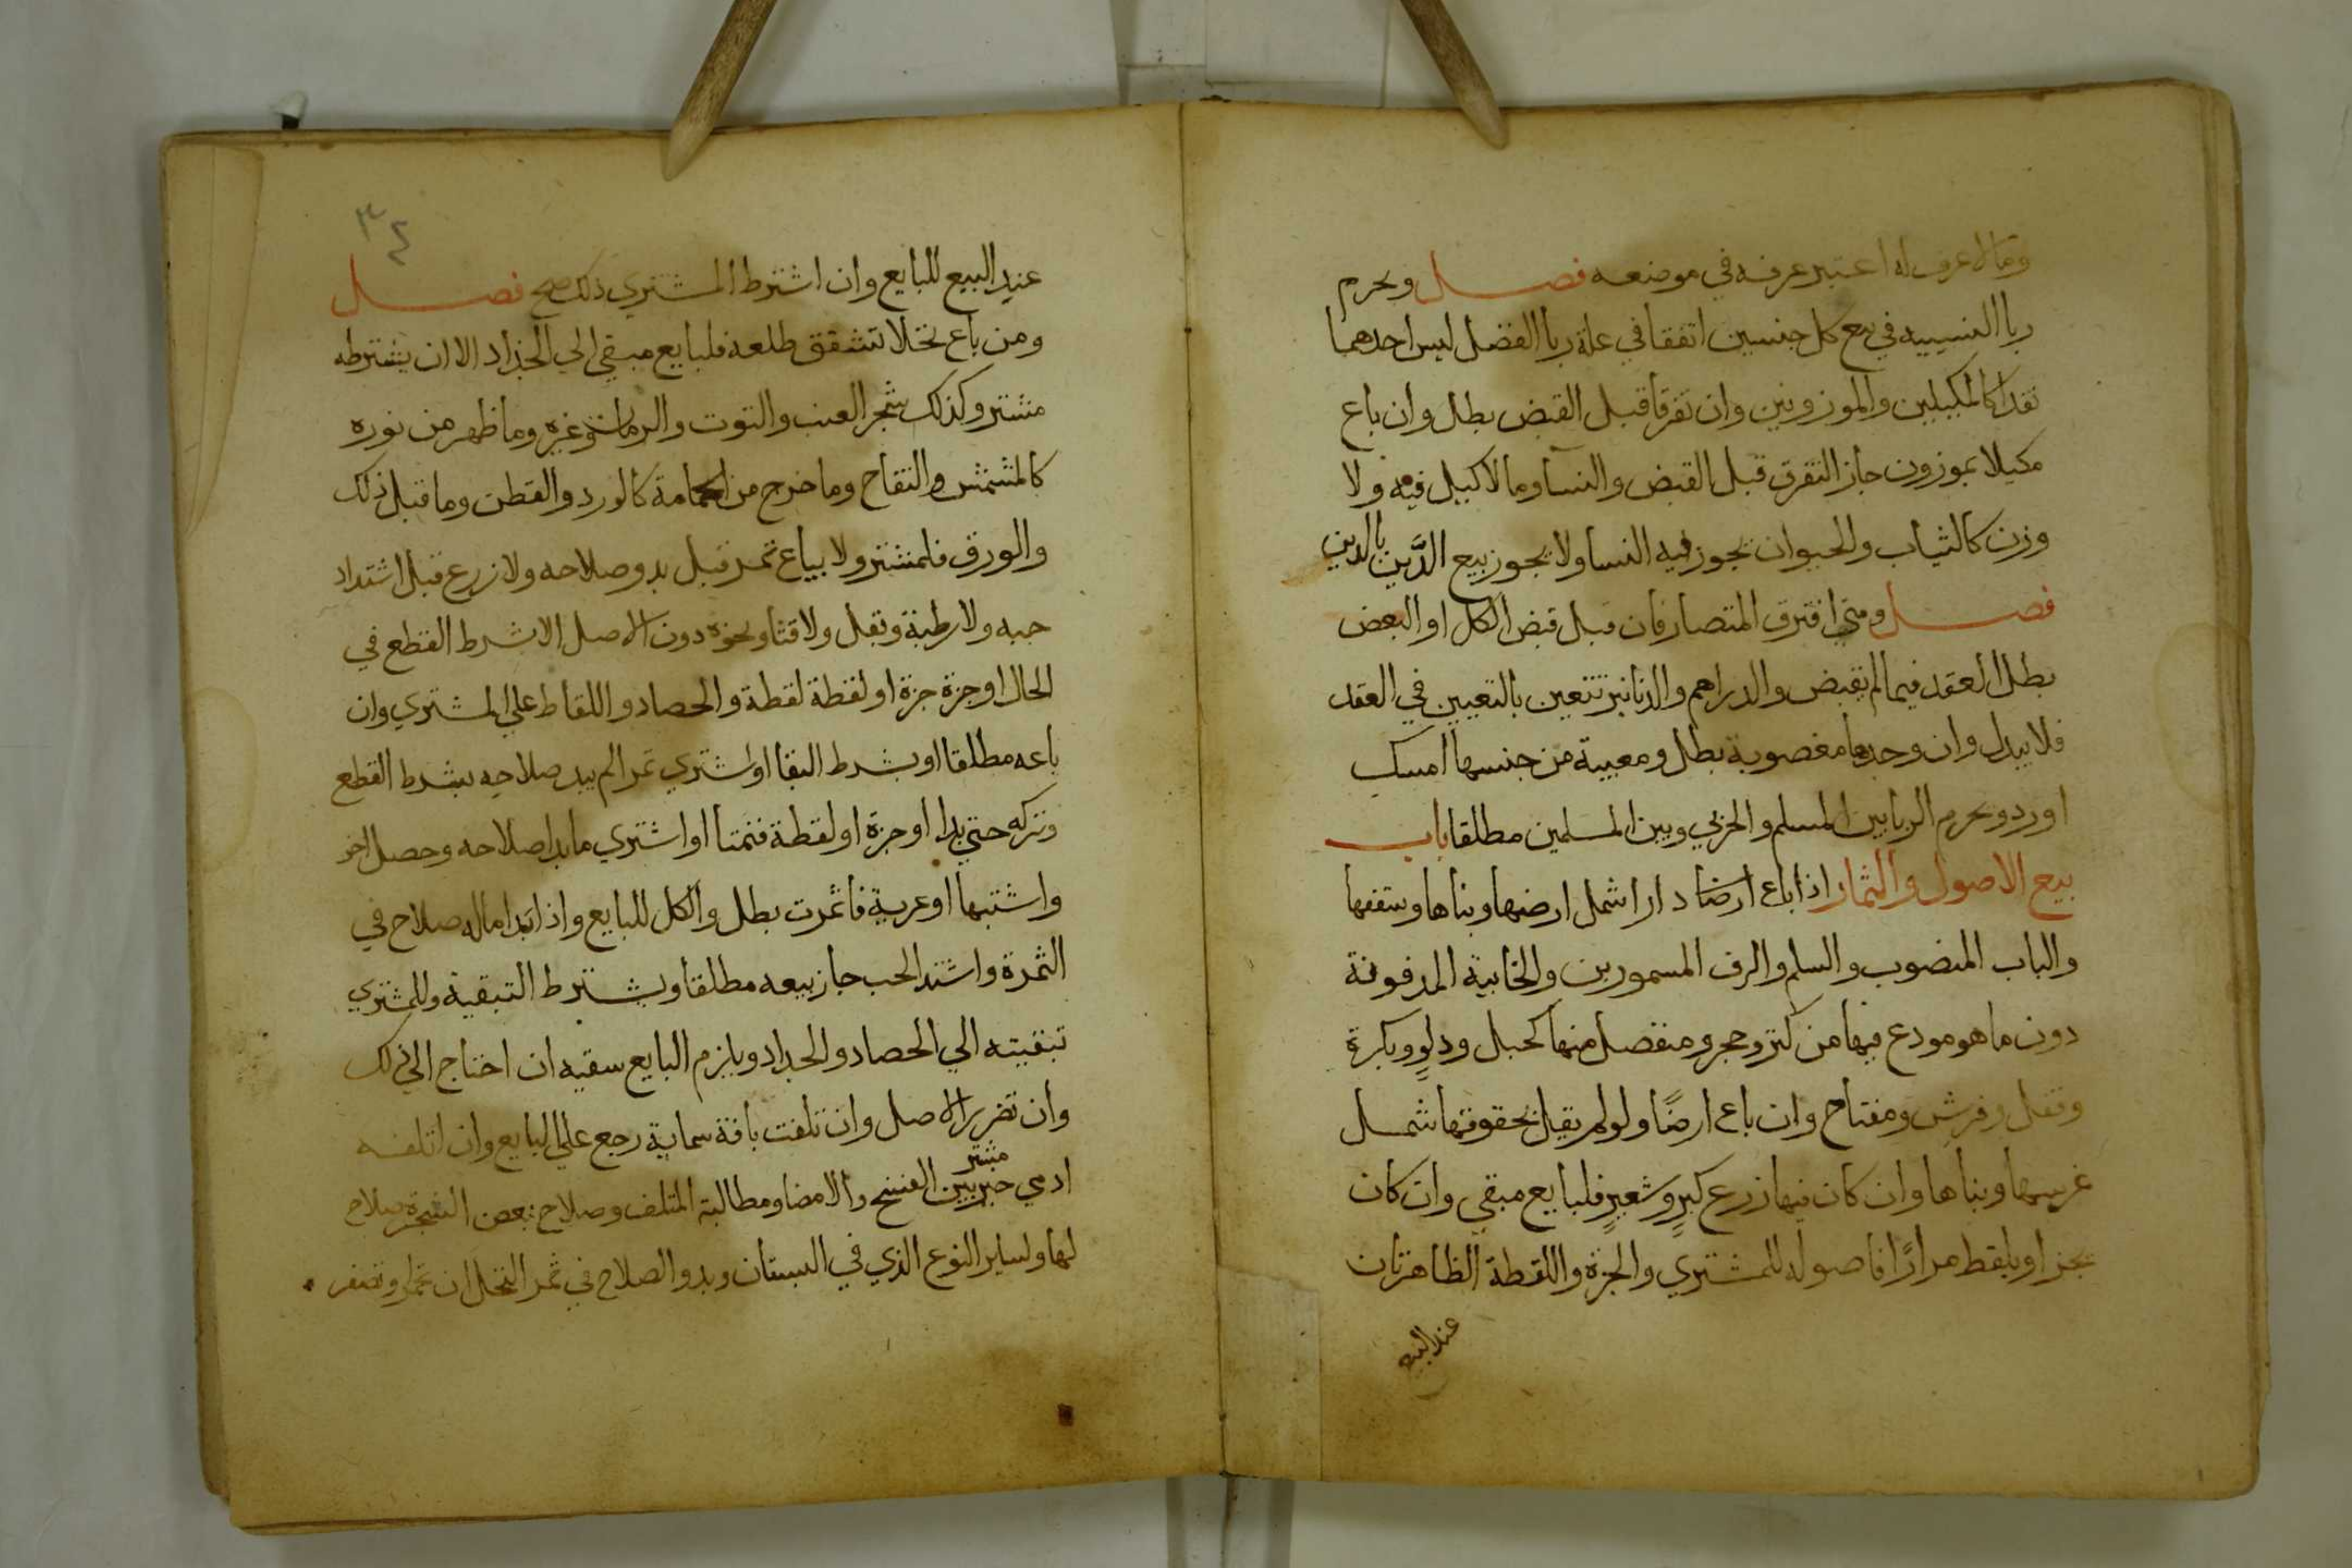 وما لا عرف له اعتبر عرفه في موضعه فصل ويحرم
ربا النسييه في بيع كل جنسين اتفقا في علة ربا الفضل ليس احدهما
نقدا كالمكيلين والموزونين وان تفرقا قبل القبض بطل وان باع
مكيلا بموزون جاز التفرق قبل القبض والنسا وما لا كيل فيه ولا
وزن كالثياب والحيوان يجوز فيه النسا ولا يجوز بيع الدَّين بالدين
فصل ومتي افترق المتصارفان قبل قبض الكل او البعض
بطل العقد فيما لم يقبض والدراهم والدنانير تتعين بالتعيين في العقد
فلا يبدل وان وجدها مغصوبة بطل ومعيبة من جنسها امسك
اورد ويحرم الربا بين المسلم والحربي وبين المسلمين مطلقا باب
بيع الاصول والثمار اذا باع ارضا دارا شمل ارضها وبناها وسقفها
والباب المنصوب والسلم والرف المسمورين والخابية المدفونة
دون ما هو مودع فيها من كنز وحجر ومنفصل منها كحبل ودلوٍ وبكرة
وقفل وفرش ومفتاح وان باع ارضًا ولو لم يقل بحقوقها شمل
غرسها وبناها وان كان فيها زرع كبرٍ وشعيرٍ فلبايع مبقي وان كان
يجز او يلقط مرارًا فاصوله للمشتري والجزة واللقطة الظاهرتان
عند البيع
٣٤
عند البيع للبايع وان اشترط المشتري ذلك صح فصل
ومن باع نخلا تشقق طلعه فلبايع مبقي الي الجذاد الا ان يشترطه
مشتر وكذلك شجر العنب والتوت والرمان وغيره وما ظهر من نوره
كالمشمش والتفاح وما خرج من اكمامه كالورد والقطن وما قبل ذلك
والورق فلمشتر ولا يباع ثمر قبل بدو صلاحه ولا زرع قبل اشتداد
حبه ولا رطبة وبقل ولا قثا ونحوه دون الاصل الا بشرط القطع في
الحال او جزة جزة او لقطة لقطة والحصاد واللقاط علي المشتري وان
باعه مطلقا او بشرط البقا او اشتري ثمرا لم يبد صلاحه بشرط القطع
وتركه حتي بدا او جزة او لقطة فنمتا او اشتري ما بدا صلاحه وحصل اخر
واشتبها او عرية فاثمرت بطل والكل للبايع واذا بدا ماله صلاح في
الثمرة واشتد الحب جاز بيعه مطلقا وبشرط التبقية وللمشتري
تبقيته الي الحصاد والجداد ويلزم البايع سقيه ان احتاج الي ذلك
وان تضرر الاصل وان تلفت بافة سماية رجع علي البايع وان اتلفه
ادمي خير مشتر بين الفسخ والامضا ومطالبة المتلف وصلاح بعض الشجرة صلاح
لها ولساير النوع الذي في البستان وبدو الصلاح في ثمر النخل ان تحمر او تصفر